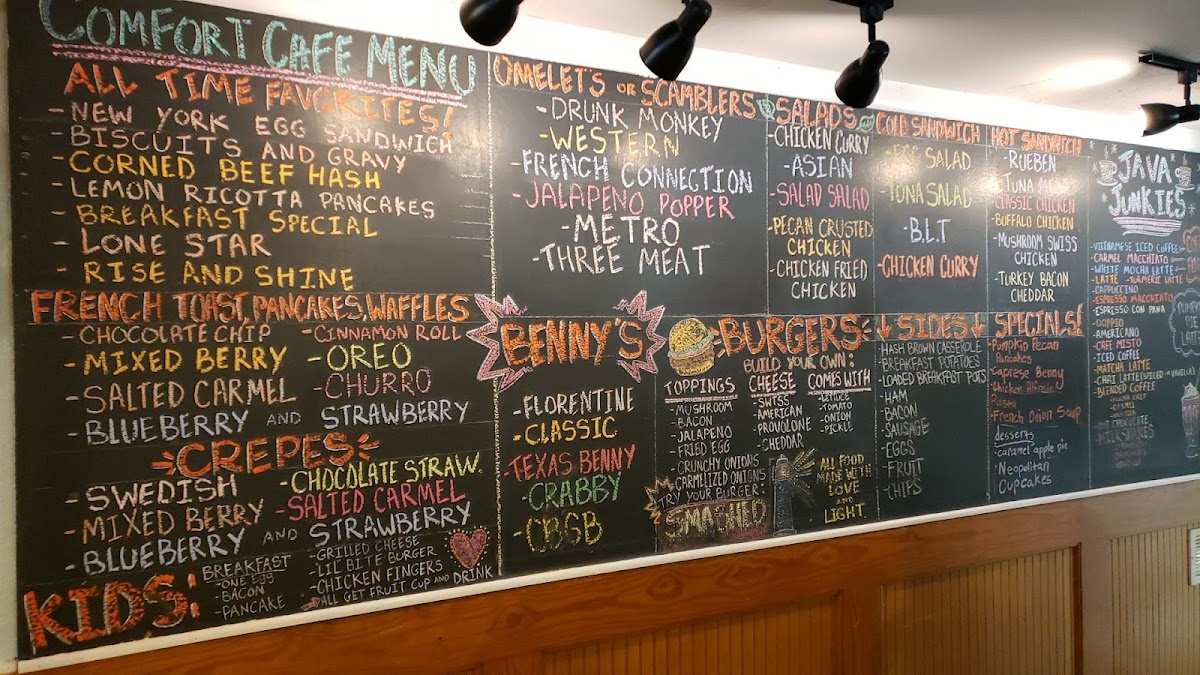 COMFORT CAFE MENU
ALL TIME FAVORITES!
- NEW YORK EGG SANDWICH
- BISCUITS AND GRAVY
- CORNED BEEF HASH
- LEMON RICOTTA PANCAKES
- BREAKFAST SPECIAL
- LONE STAR
- RISE AND SHINE
FRENCH TOAST, PANCAKES, WAFFLES
- CHOCOLATE CHIP
- MIXED BERRY
- SALTED CARMEL
- BLUEBERRY AND STRAWBERRY
- CINNAMON ROLL
- OREO
- CHURRO
CREPES
- SWEDISH
- MIXED BERRY
- BLUEBERRY AND STRAWBERRY
- CHOCOLATE STRAW.
- SALTED CARMEL
KIDS:
BREAKFAST
- ONE EGG
- BACON
- PANCAKE
- GRILLED CHEESE
- LIL BITE BURGER
- CHICKEN FINGERS
→ ALL GET FRUIT CUP AND DRINK
OMELETS OR SCAMBLERS
- DRUNK MONKEY
- WESTERN
- FRENCH CONNECTION
- JALAPENO POPPER
- METRO
- THREE MEAT
BENNY'S
- FLORENTINE
- CLASSIC
- TEXAS BENNY
- CRABBY
- CBGB
SALADS
- CHICKEN CURRY
- ASIAN
- SALAD SALAD
- PECAN CRUSTED
CHICKEN
- CHICKEN FRIED
CHICKEN
COLD SANDWICH
- EGG SALAD
- TUNA SALAD
- B.L.T
- CHICKEN CURRY
HOT SANDWICH
- RUEBEN
- TUNA MELT
- CLASSIC CHICKEN
- BUFFALO CHICKEN
- MUSHROOM SWISS
CHICKEN
- TURKEY BACON
CHEDDAR
BURGERS
BUILD YOUR OWN:
TOPPINGS
- MUSHROOM
- BACON
- JALAPENO
- FRIED EGG
- CRUNCHY ONIONS
- CARMELIZED ONIONS
TRY YOUR BURGER:
SMASHED
CHEESE
- SWISS
- AMERICAN
- PROVOLONE
- CHEDDAR
COMES WITH
- LETTUCE
- TOMATO
- ONION
- PICKLE
ALL FOOD
MADE WITH
LOVE
AND
LIGHT
↓ SIDES ↓
- HASH BROWN CASSEROLE
- BREAKFAST POTATOES
- LOADED BREAKFAST POTS
- HAM
- BACON
- SAUSAGE
- EGGS
- FRUIT
- CHIPS
SPECIALS!
- Pumpkin Pecan
Pancakes
- Caprese Benny
- Chicken Alfredo
Pasta
- French Onion Soup
desserts
- caramel apple pie
- Neopolitan
Cupcakes
JAVA
JUNKIES
- VIETNAMESE ICED COFFEE
- CARAMEL MACCHIATO
- WHITE MOCHA LATTE
- LATTE - TURMERIC LATTE
- CAPPUCCINO
- ESPRESSO MACCHIATO
- ESPRESSO CON PANA
- DOPPIO
- AMERICANO
- CAFE MISTO
- ICED COFFEE
- MATCHA LATTE
- CHAI LATTE (SPICED OR VANILLA)
- BLENDED COFFEE
- HOT CHOCOLATE
- MILKSHAKES